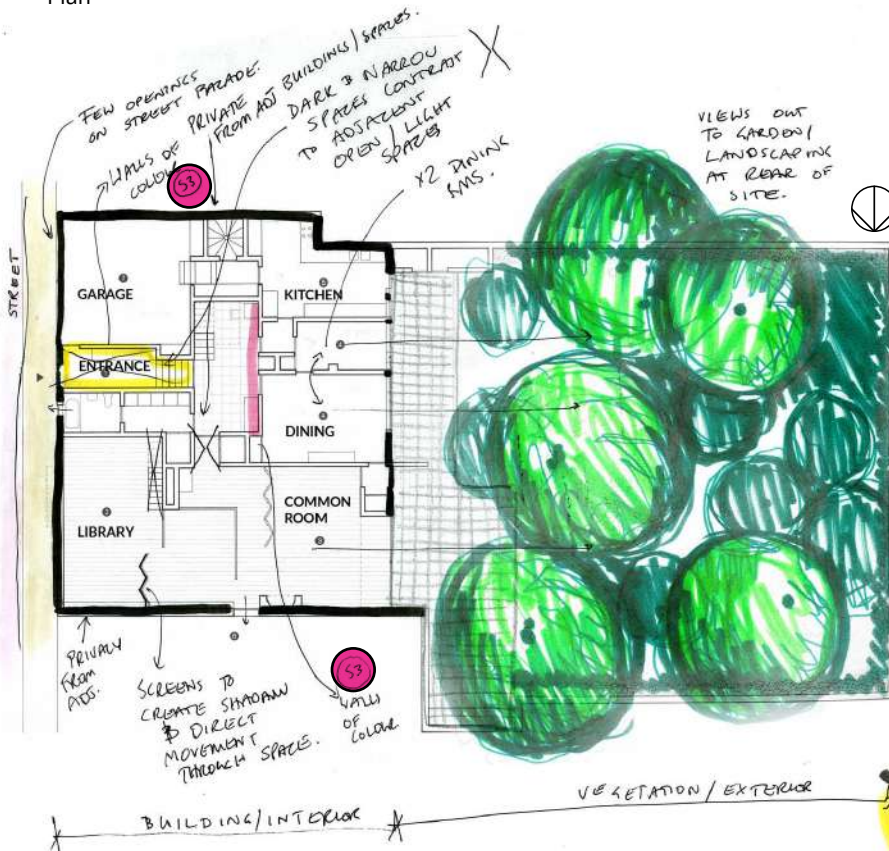 Plan
FEW OPENINGS
ON STREET FACADE.
WALLS OF
COLOUR
S3
PRIVATE
FROM ADJ BUILDINGS/SPACES.
DARK & NARROW
SPACES CONTRAST
TO ADJACENT
OPEN / LIGHT
SPACES
X2 DINING
RMS.
VIEWS OUT
TO GARDEN/
LANDSCAPING
AT REAR OF
SITE.
STREET
GARAGE
KITCHEN
ENTRANCE
DINING
LIBRARY
COMMON
ROOM
PRIVACY
FROM
ADJ.
SCREENS TO
CREATE SHADOW
& DIRECT
MOVEMENT
THROUGH SPACE.
S3
WALLS
OF
COLOUR
BUILDING/INTERIOR
VEGETATION/EXTERIOR